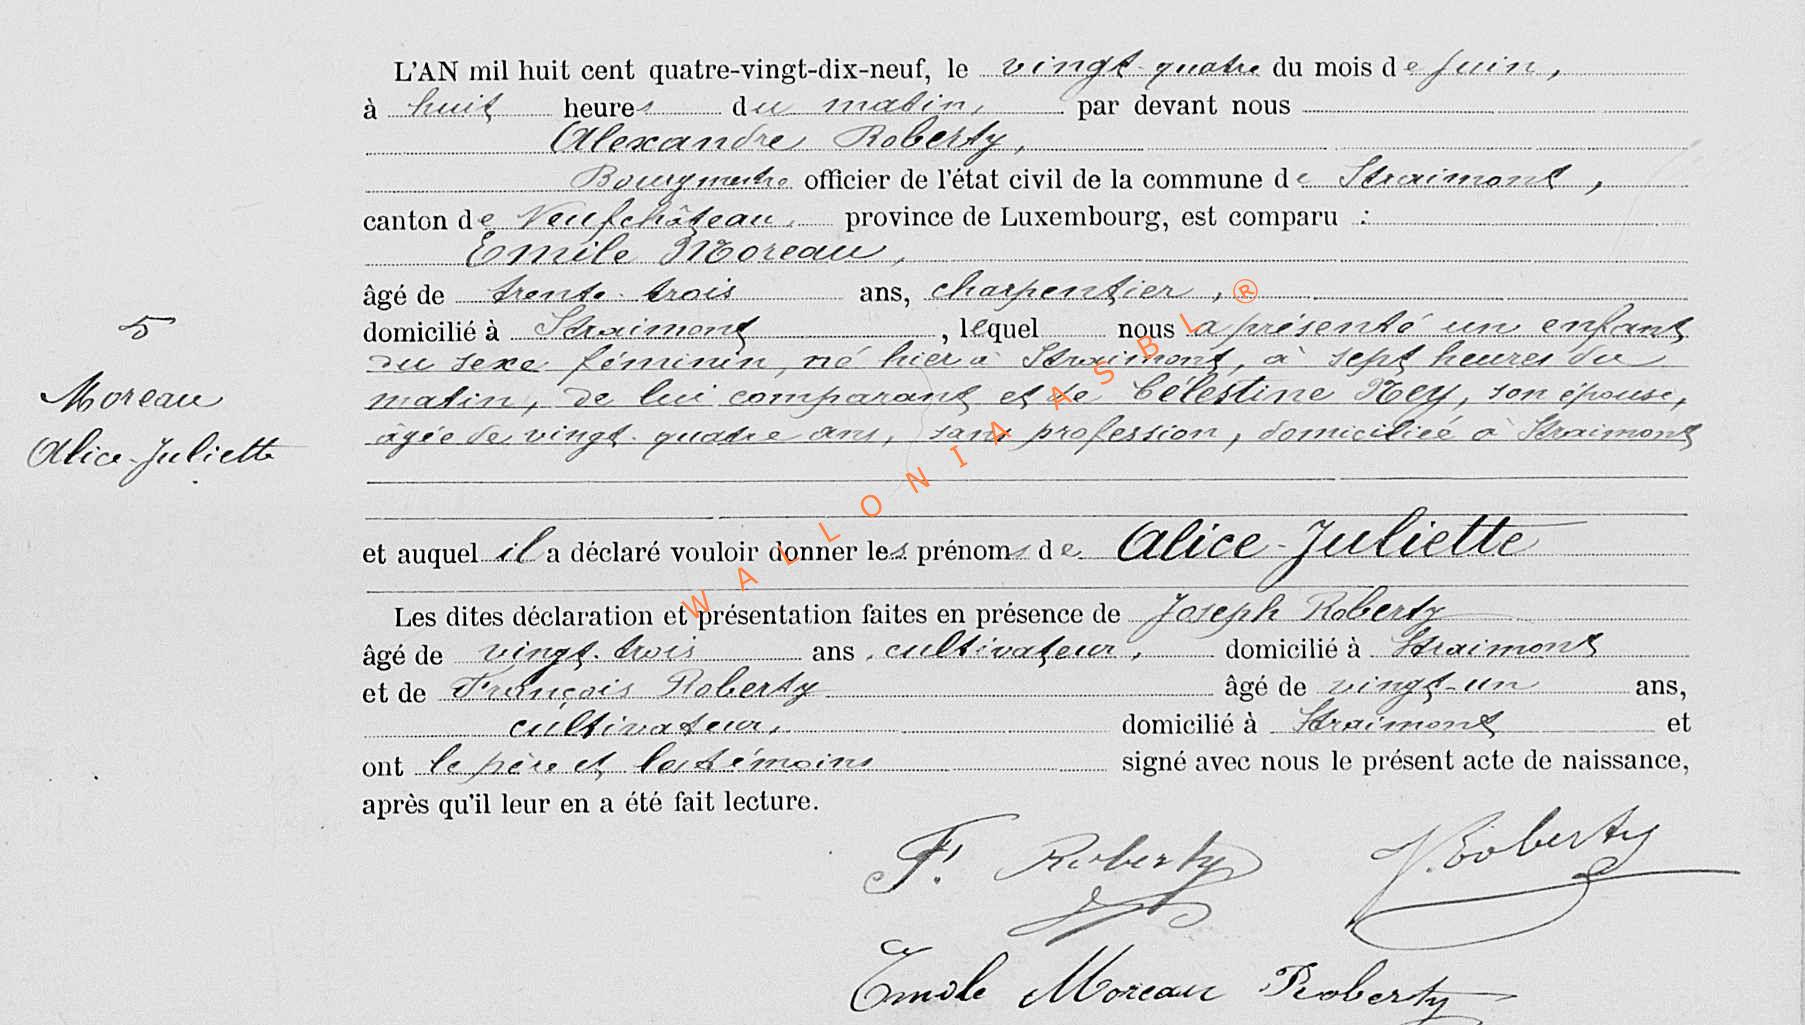 L'AN mil huit cent quatre-vingt-dix-neuf, le vingt-quatre du mois de Juin,
à huit heures du matin, par devant nous
Alexandre Roberty,
Bourgmestre officier de l'état civil de la commune de Straimont,
canton de Neufchâteau, province de Luxembourg, est comparu :
Emile Moreau,
âgé de trente-trois ans, charpentier,
domicilié à Straimont, lequel nous a présenté un enfant
du sexe féminin, né hier à Straimont, à sept heures du
matin, de lui comparant et de Célestine Ney, son épouse,
âgée de vingt-quatre ans, sans profession, domiciliée à Straimont
5
Moreau
Alice-Juliette
et auquel il a déclaré vouloir donner les prénoms de Alice-Juliette
Les dites déclaration et présentation faites en présence de Joseph Roberty
âgé de vingt-trois ans, cultivateur, domicilié à Straimont
et de François Roberty âgé de vingt-un ans,
cultivateur, domicilié à Straimont et
ont le père et les témoins signé avec nous le présent acte de naissance,
après qu'il leur en a été fait lecture.
F. Roberty J. Roberty
Emile Moreau Roberty
WALLONIA ASBL ®